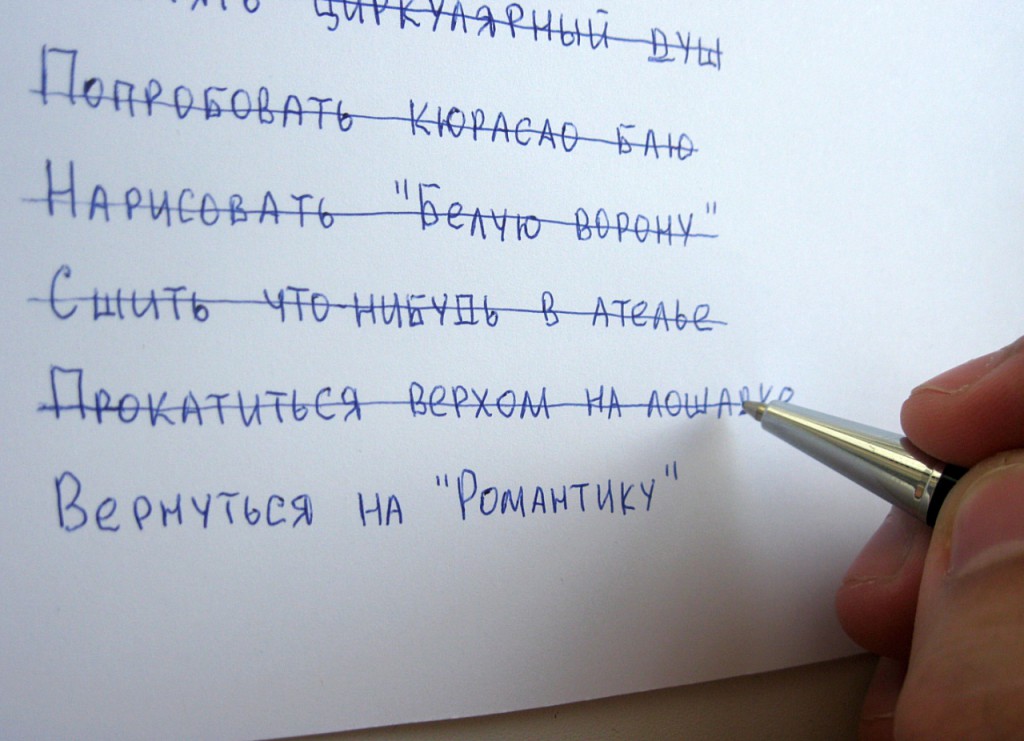 ЦИРКУЛЯРНЫЙ ДУШ
ПОПРОБОВАТЬ КЮРАСАО БАЮ
НАРИСОВАТЬ "БЕЛУЮ ВОРОНУ"
СШИТЬ ЧТО-НИБУДЬ В АТЕЛЬЕ
ПРОКАТИТЬСЯ ВЕРХОМ НА ЛОШАДКЕ
ВЕРНУТЬСЯ НА "РОМАНТИКУ"